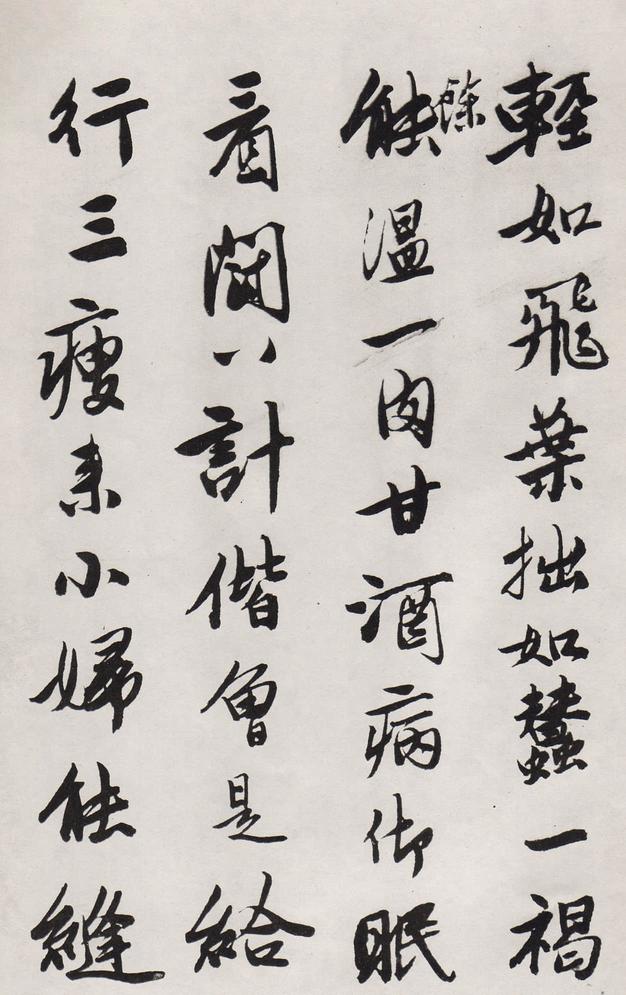 輕如飛葉拙如蠶一褐
能餘溫一肉甘酒病御眠
看閙八計偕曾是給
行三瘦來小婦能縫